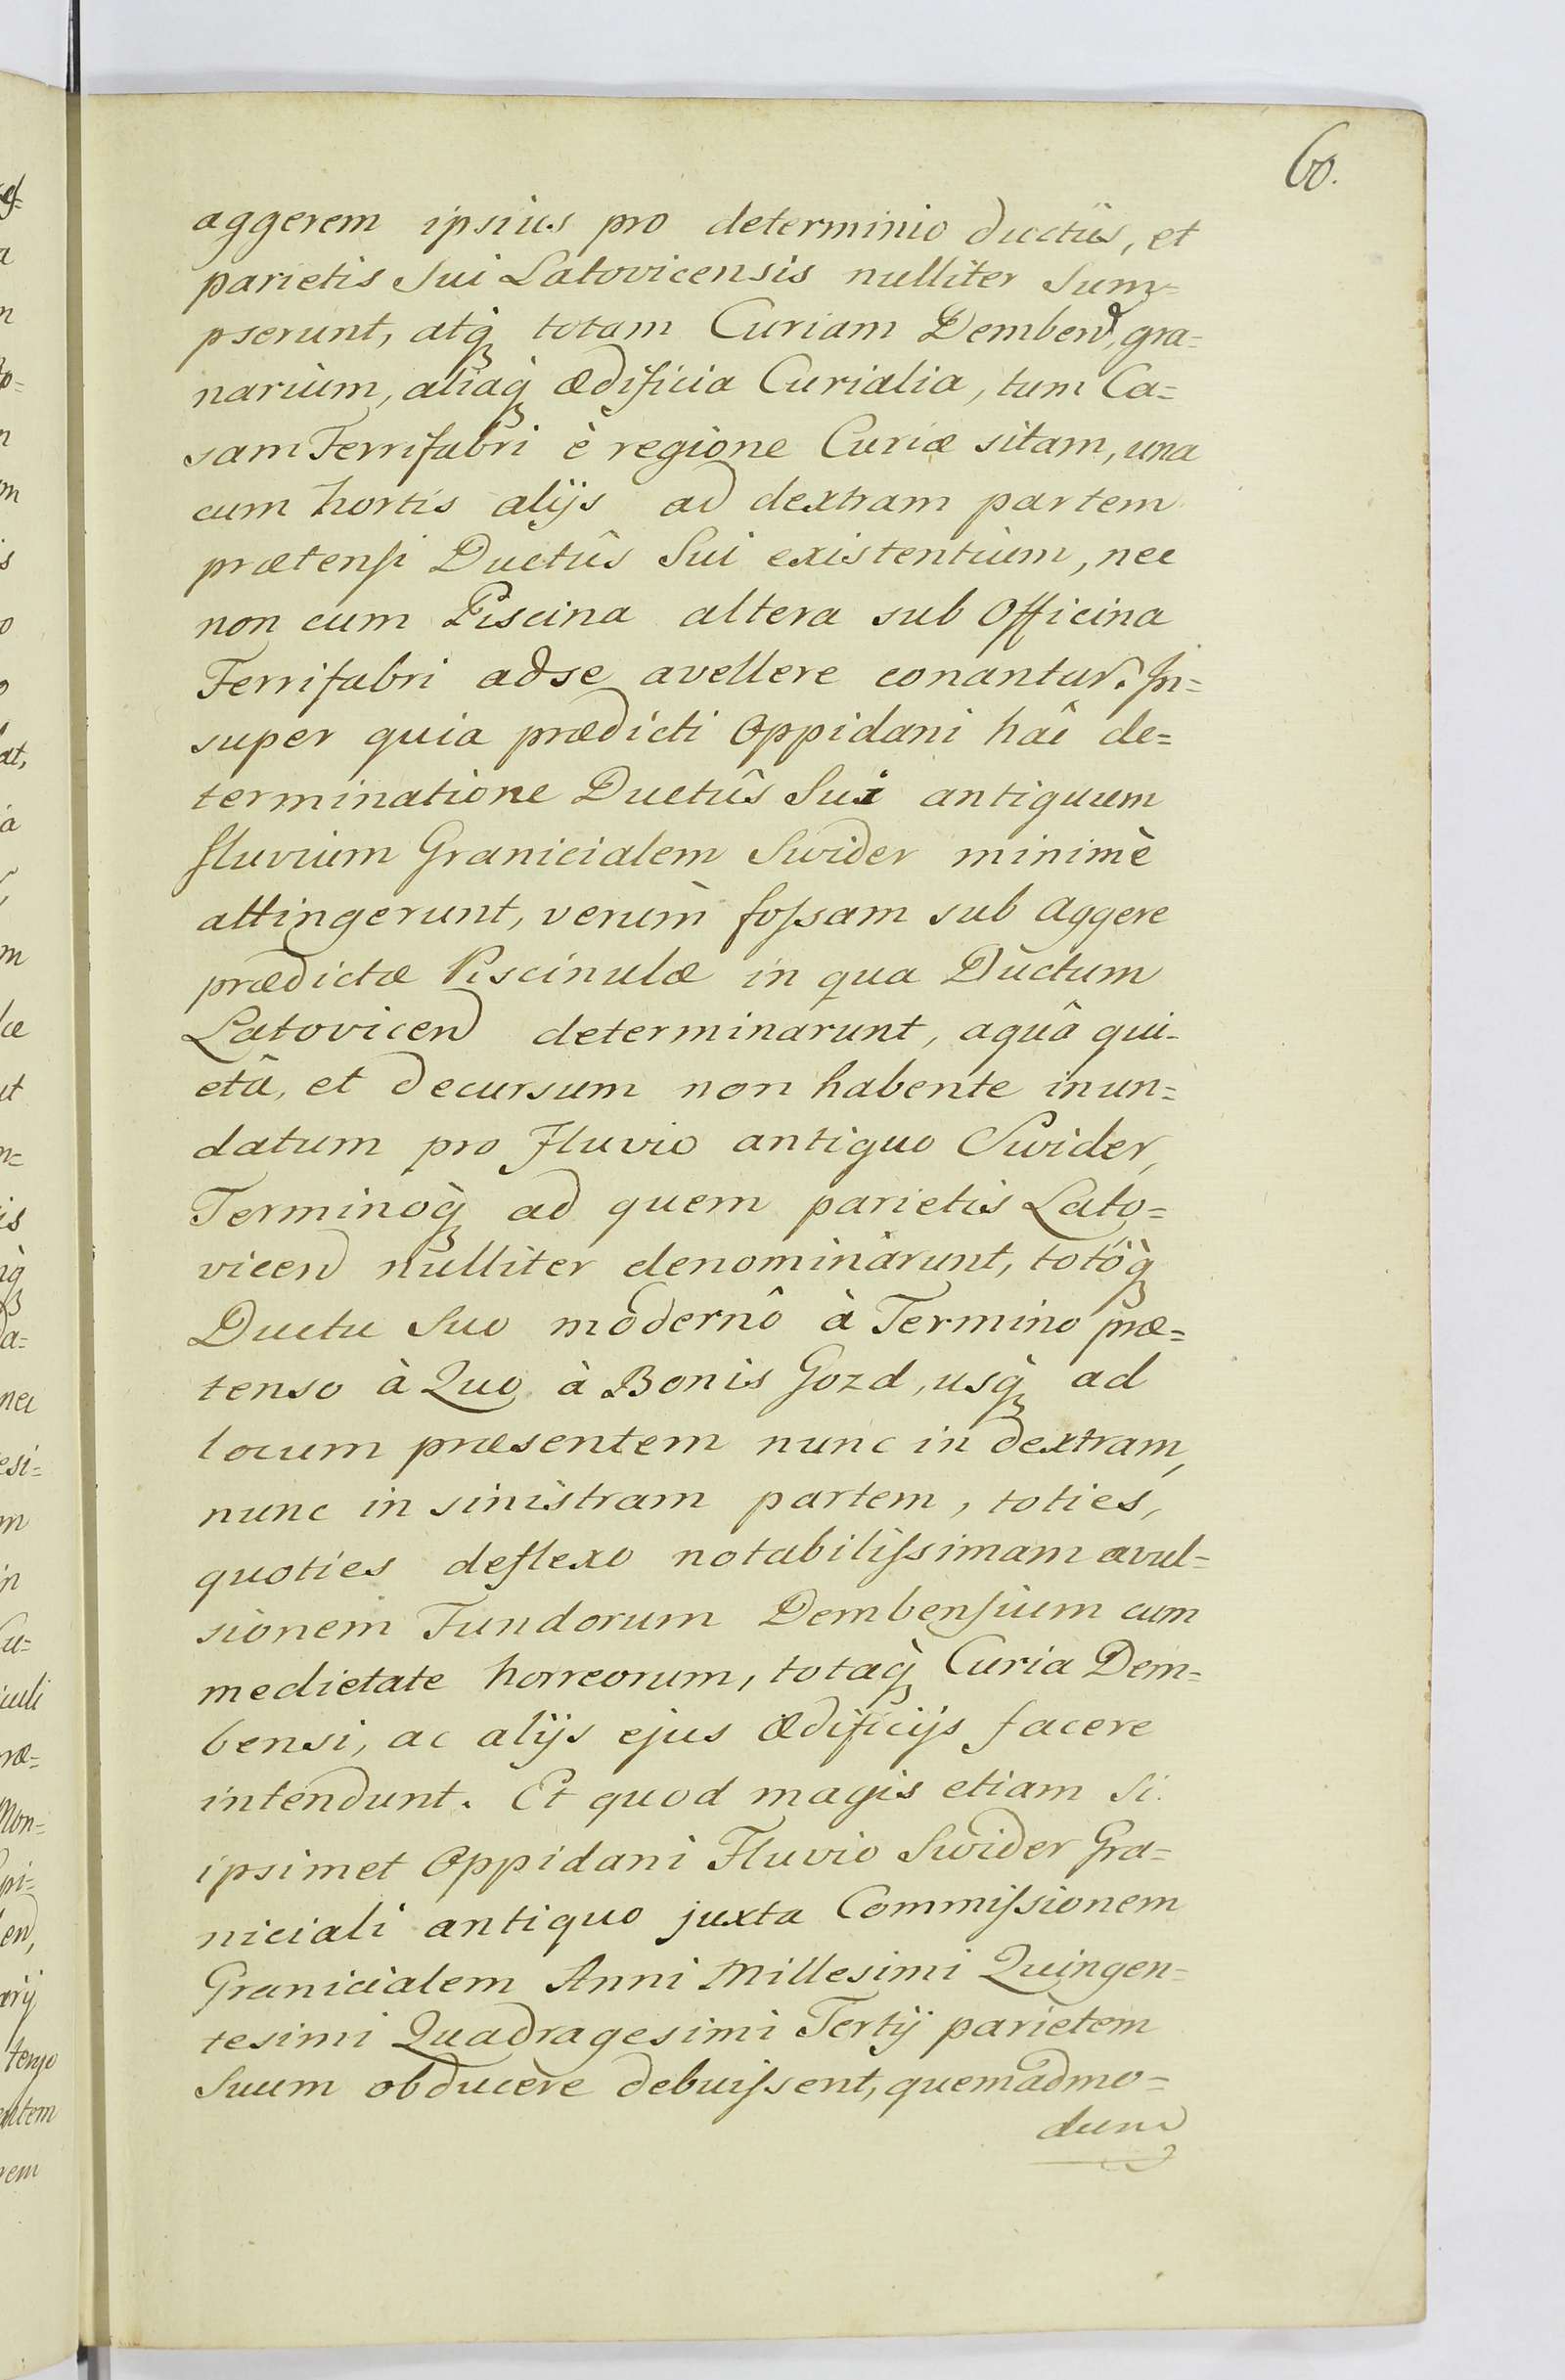 60.
aggerem ipsius pro determinio ductûs, et
parietis Sui Latovicensis nulliter Sum=
pserunt, atq̀ꝫ totam Curiam Demben̄, gra=
narium, aliaq̀ꝫ ædificia Curialia, tum Ca=
sam Ferrifabri è regione Curiæ sitam, una
cum hortis alijs ad dextram partem
prætenſi Ductûs Sui existentium, nec
non cum Piscina altera sub Officina
Ferrifabri adse avellere conantur. In=
super quia prædicti Oppidani hâc de=
terminatione Ductûs Sui antiquum
fluvium Granicialem Swider minimè
attingerunt, verùm foſsam sub Aggere
prædictæ Piscinulæ in qua Ductum
Latovicen̄ determinarunt, aquâ qui-
etâ, et decursum non habente inun=
datum pro Fluvio antiquo Swider,
Terminoq̀ꝫ ad quem parietis Lato=
vicen̄ nulliter denominârunt, totoq̀ꝫ
Ductu Suo modernô à Termino præ=
tenso à Quo à Bonis Gozd, usq̀ꝫ ad
locum præsentem nunc in dextram,
nunc in sinistram partem, toties,
quoties deflexo notabiliſsimam avul=
sionem Fundorum Dembenſium cum
medietate horreorum, totaq̀ꝫ Curia Dem=
bensi, ac alijs ejus ædificijs facere
intendunt. Et quod magis etiam Si
ipsimet Oppidani Fluvio Swider Gra=
niciali antiquo juxta Commiſsionem
Granicialem Anni Millesimi Quingen=
tesimi Quadragesimi Tertij parietem
Suum obducere debuiſsent, quemadmo=
dum